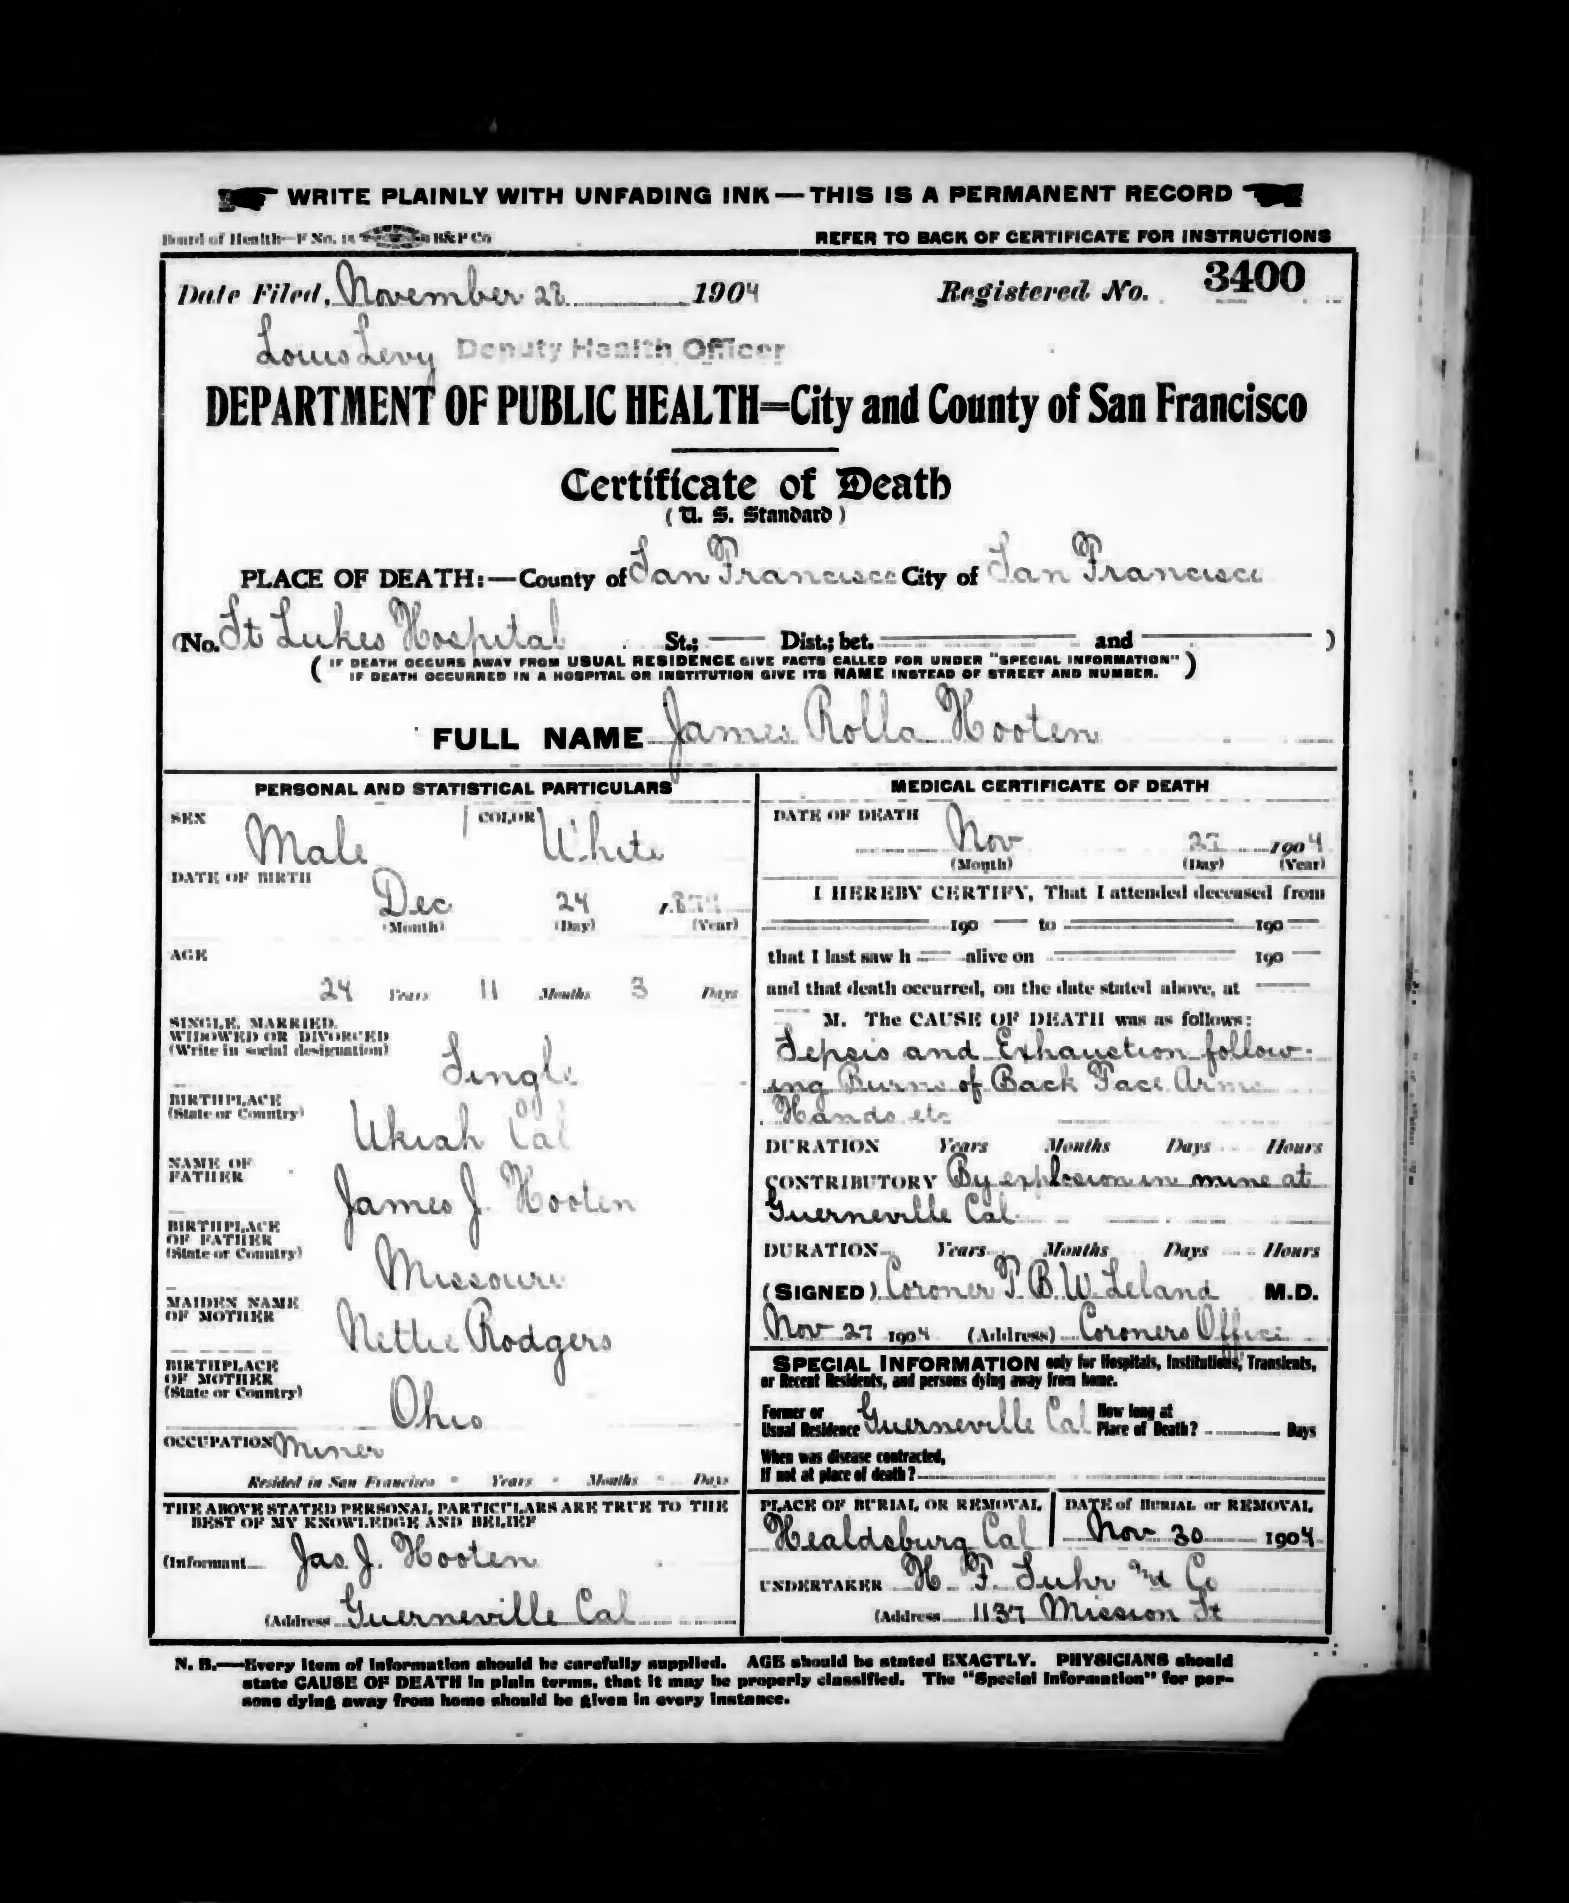 WRITE PLAINLY WITH UNFADING INK—THIS IS A PERMANENT RECORD
Board of Health—F No. 15 B&P Co
REFER TO BACK OF CERTIFICATE FOR INSTRUCTIONS
Date Filed, November 28 1904 Registered No. 3400
Louis Levy Deputy Health Officer
DEPARTMENT OF PUBLIC HEALTH=City and County of San Francisco
Certificate of Death
(U. S. Standard)
PLACE OF DEATH:—County of San Francisco City of San Francisco
(No. St Lukes Hospital St.; Dist.; bet. and )
(IF DEATH OCCURS AWAY FROM USUAL RESIDENCE GIVE FACTS CALLED FOR UNDER "SPECIAL INFORMATION"
IF DEATH OCCURRED IN A HOSPITAL OR INSTITUTION GIVE ITS NAME INSTEAD OF STREET AND NUMBER.)
FULL NAME James Rolla Hooten
PERSONAL AND STATISTICAL PARTICULARS
SEX Male COLOR White
DATE OF BIRTH
Dec 24 1879
(Month) (Day) (Year)
AGE
24 Years 11 Months 3 Days
SINGLE, MARRIED,
WIDOWED OR DIVORCED
(Write in social designation) Single
BIRTHPLACE
(State or Country) Ukiah Cal
NAME OF
FATHER James J. Hooten
BIRTHPLACE
OF FATHER
(State or Country) Missouri
MAIDEN NAME
OF MOTHER Nettie Rodgers
BIRTHPLACE
OF MOTHER
(State or Country) Ohio
OCCUPATION Miner
Resided in San Francisco Years Months Days
THE ABOVE STATED PERSONAL PARTICULARS ARE TRUE TO THE
BEST OF MY KNOWLEDGE AND BELIEF
(Informant Jas. J. Hooten
(Address Guerneville Cal
MEDICAL CERTIFICATE OF DEATH
DATE OF DEATH
Nov 27 1904
(Month) (Day) (Year)
I HEREBY CERTIFY, That I attended deceased from
190 to 190
that I last saw h alive on 190
and that death occurred, on the date stated above, at
M. The CAUSE OF DEATH was as follows:
Sepsis and Exhaustion follow-
ing Burns of Back Face Arms
Hands etc
DURATION Years Months Days Hours
CONTRIBUTORY By explosion in mine at
Guerneville Cal
DURATION Years Months Days Hours
(SIGNED) Coroner T. B. W. Leland M.D.
Nov 27 1904 (Address) Coroners Office
SPECIAL INFORMATION only for Hospitals, Institutions, Transients,
or Recent Residents, and persons dying away from home.
Former or
Usual Residence Guerneville Cal How long at
Place of Death? Days
When was disease contracted,
If not at place of death?
PLACE OF BURIAL OR REMOVAL DATE of BURIAL or REMOVAL
Healdsburg Cal Nov 30 1904
UNDERTAKER H. F. Suhr and Co
(Address 1137 Mission St
N. B.—Every item of information should be carefully supplied. AGE should be stated EXACTLY. PHYSICIANS should
state CAUSE OF DEATH in plain terms, that it may be properly classified. The "Special Information" for per-
sons dying away from home should be given in every instance.